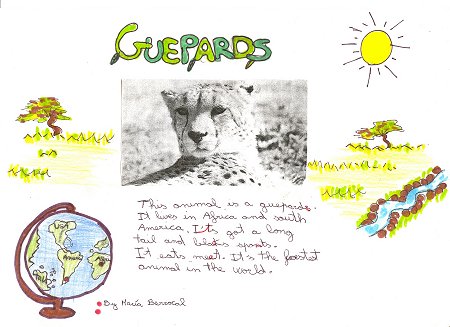 GUEPARDS
This animal is a guepards.
It lives in Africa and south
America. It's got a long
tail and blaks spots.
It eats meet. It's the fastest
animal in the world.
By María Berrocal
USA